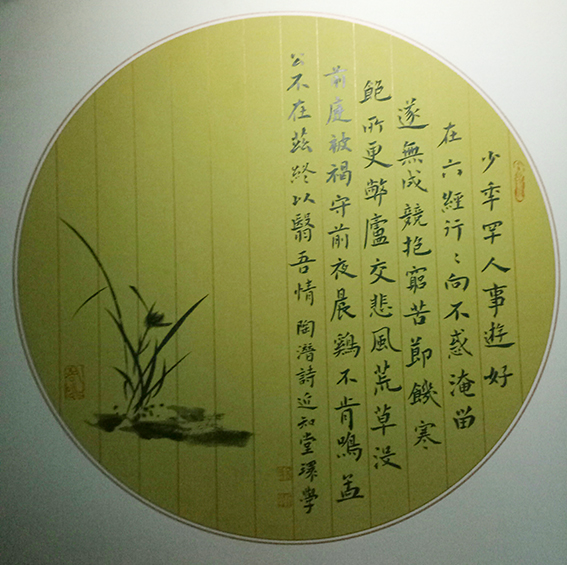 少年罕人事遊好
在六經行〻向不惑淹留
遂無成競抱窮苦節饑寒
飽所更弊廬交悲風荒草沒
前庭被褐守前夜晨鷄不肯鳴孟
公不在茲終以翳吾情 陶潛詩近知堂環學